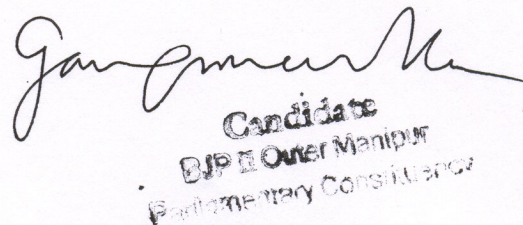 Candidate
BJP II Outer Manipur
Parliamentary Constituency